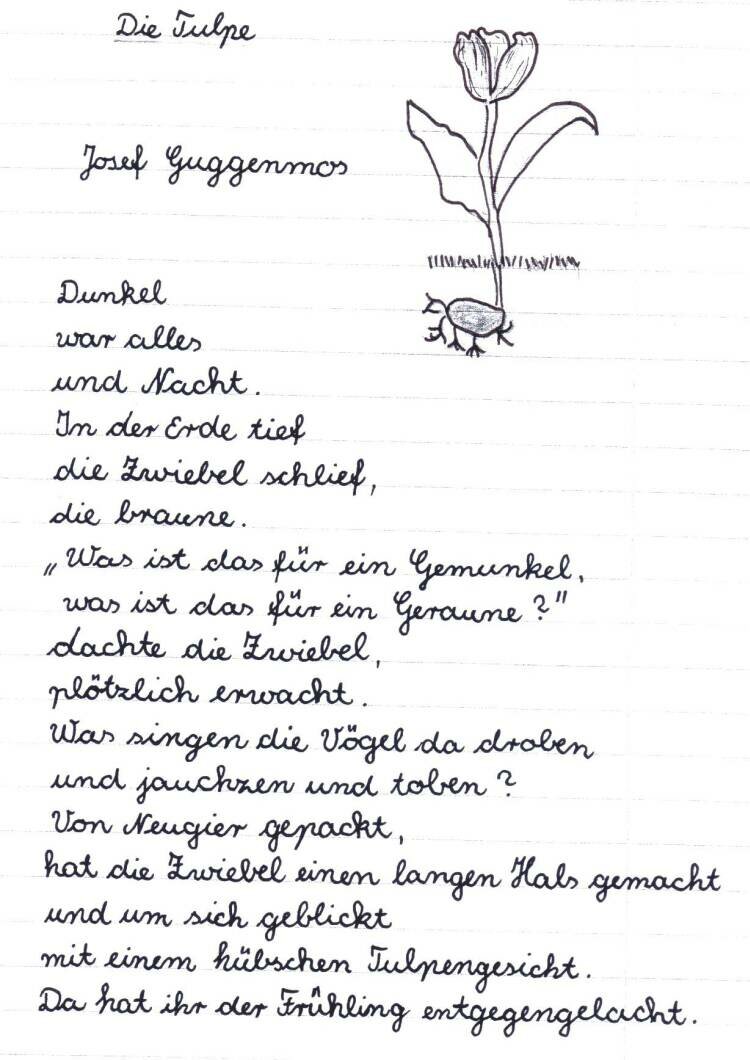 Die Tulpe
Josef Guggenmos
Dunkel
war alles
und Nacht.
In der Erde tief
die Zwiebel schlief,
die braune.
„Was ist das für ein Gemunkel,
was ist das für ein Geraune?"
dachte die Zwiebel,
plötzlich erwacht.
Was singen die Vögel da droben
und jauchzen und toben?
Von Neugier gepackt,
hat die Zwiebel einen langen Hals gemacht
und um sich geblickt
mit einem hübschen Tulpengesicht.
Da hat ihr der Frühling entgegengelacht.